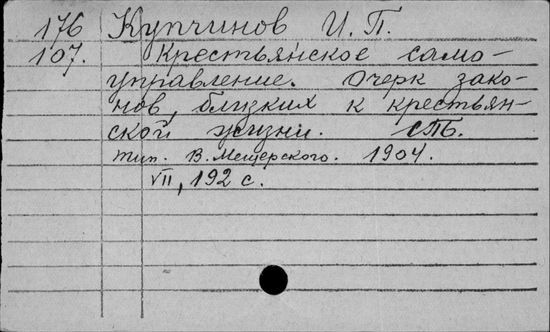 176 Купчинов И. П.
107. Крестьянское само-
управление. Очерк зако-
нов, близких к крестьян-
ской жизни. СПБ.
тип. В. Мещерского. 1904.
VII, 192 с.